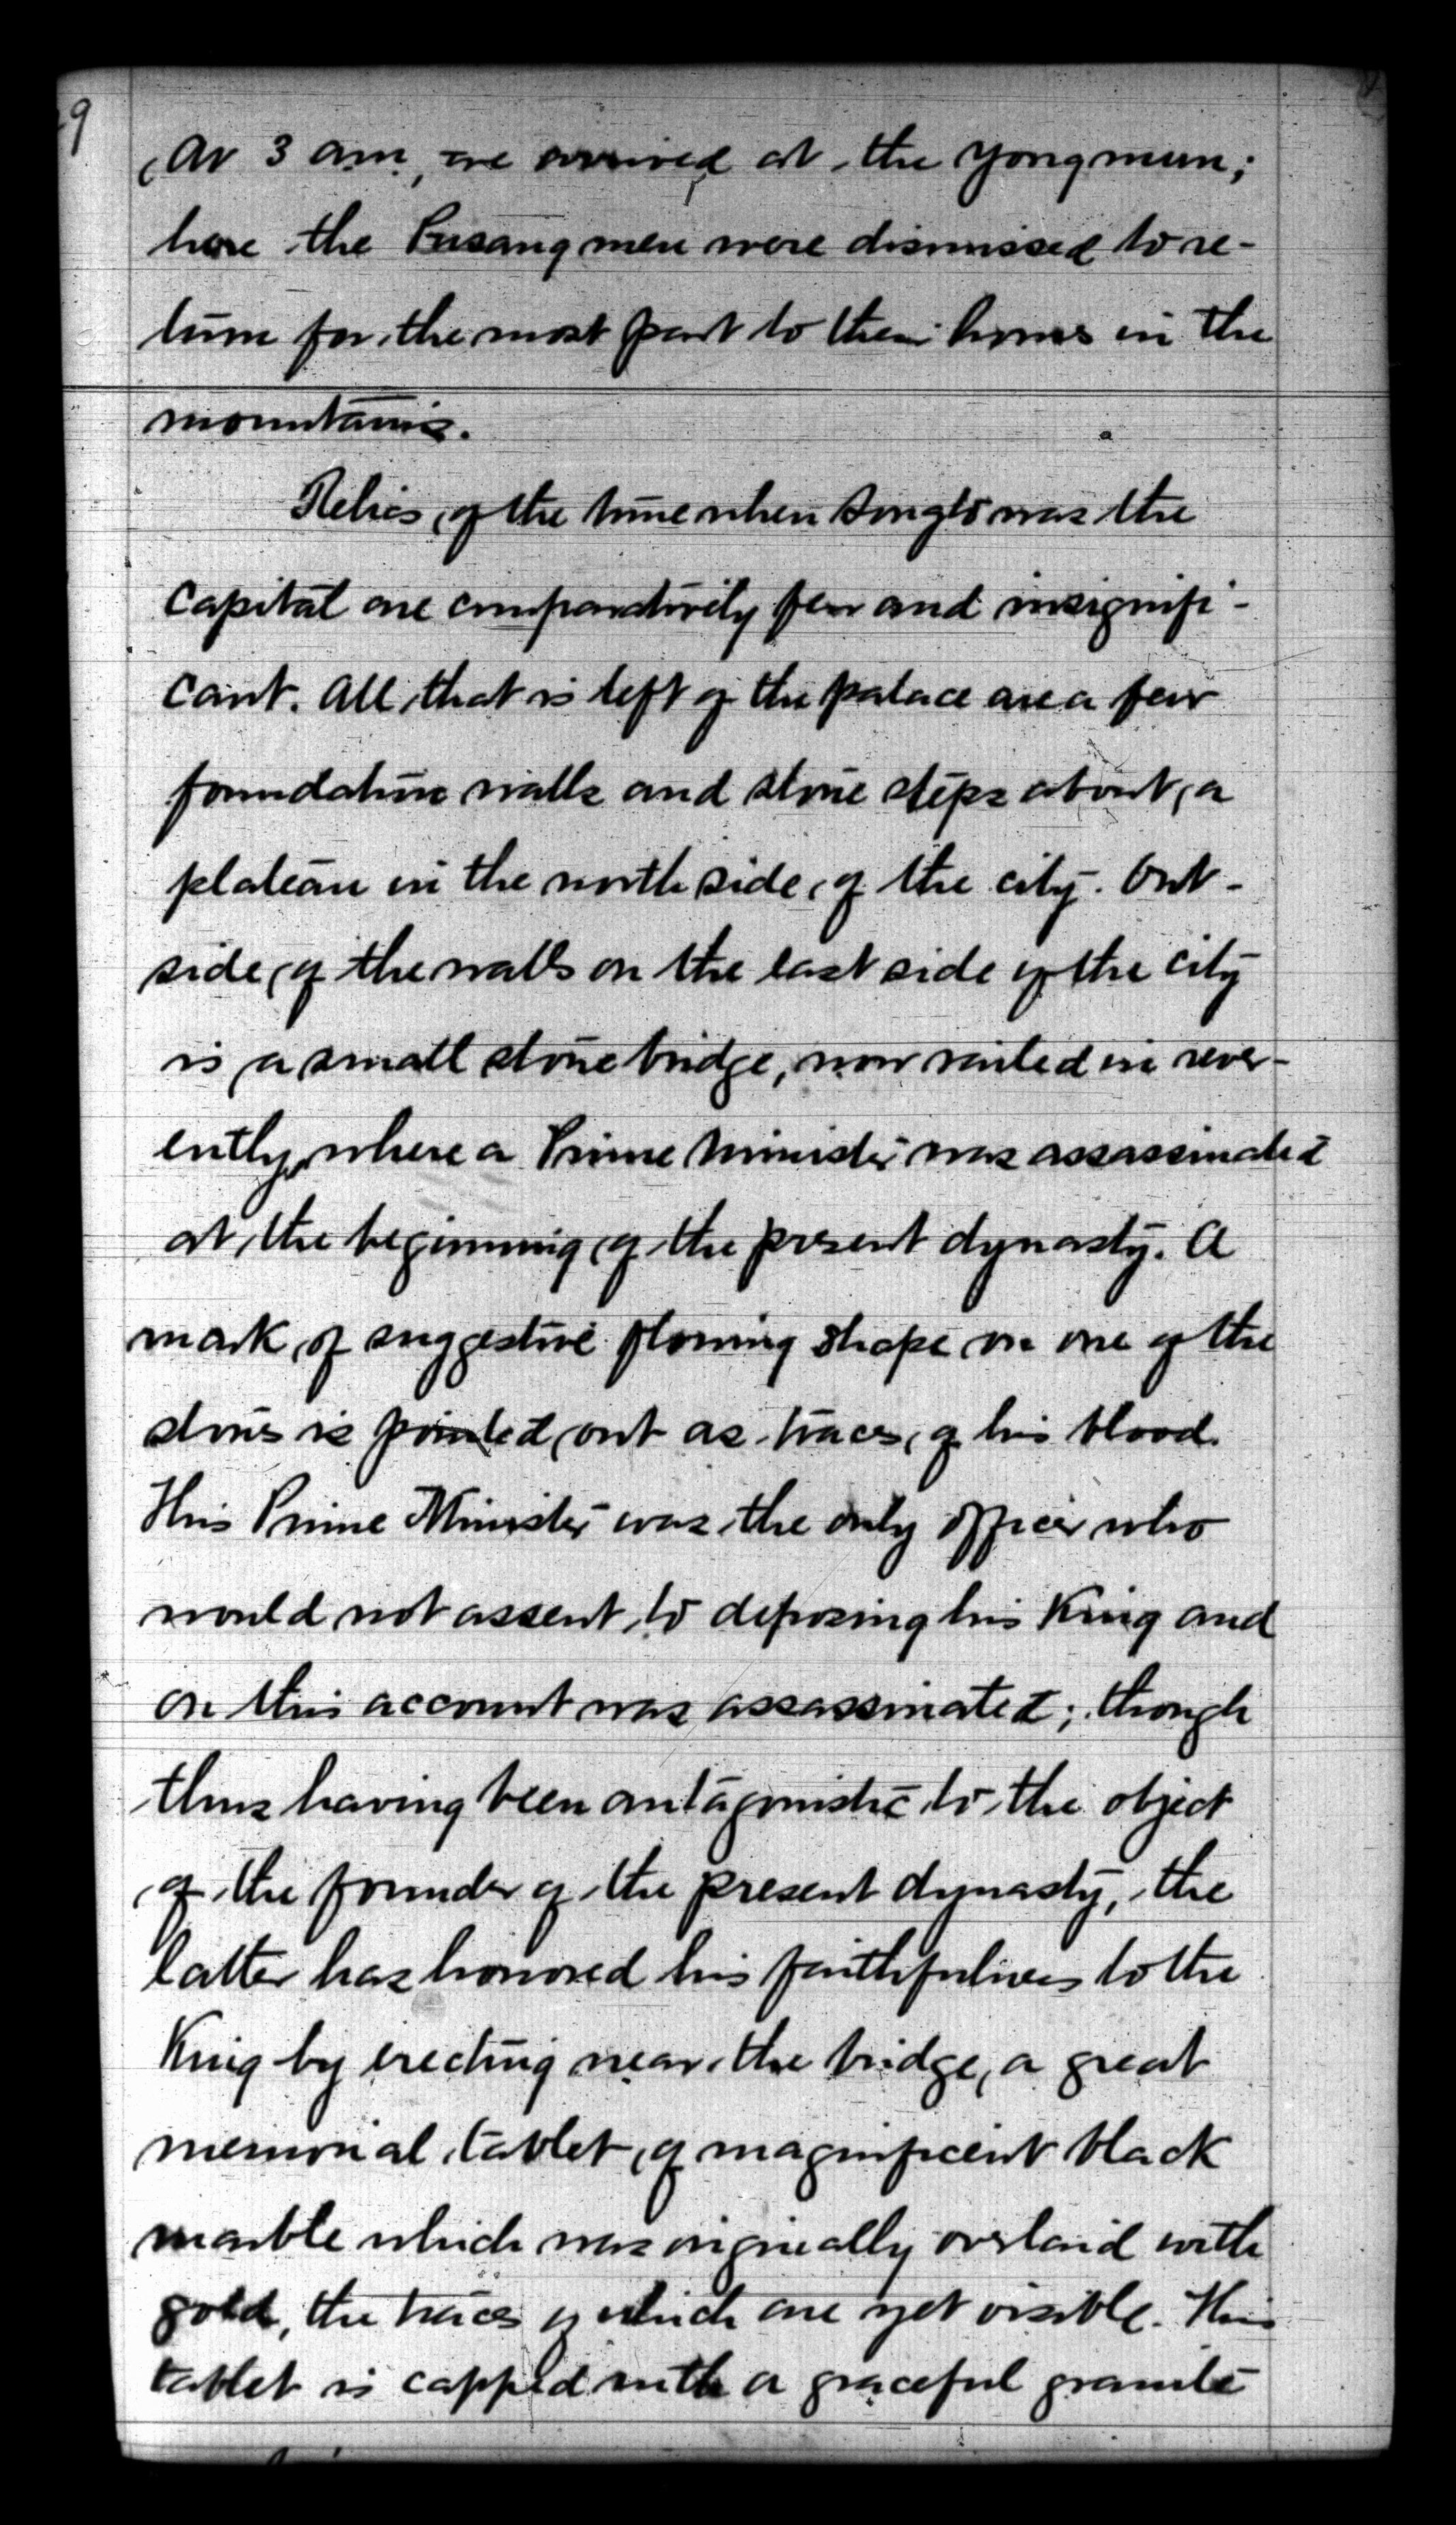 9
At 3 a.m., we arrived at the Yongmun;
here the Pusang men were dismissed to re-
turn for the most part to their homes in the
mountains.
Relics of the time when Songto was the
Capital are comparatively few and insignifi-
cant. All that is left of the palace are a few
foundation walls and stone steps about a
plateau in the north side of the city. Out-
side of the walls on the east side of the city
is a small stone bridge, now railed in rever-
ently, where a Prime Minister was assassinated
at the beginning of the present dynasty. A
mark of suggestive flowing shape on one of the
stones is pointed out as traces of his blood.
This Prime Minister was the only officer who
would not assent to deposing his King and
on this account was assassinated; though
thus having been antagonistic to the object
of the founder of the present dynasty, the
latter has honored his faithfulness to the
King by erecting near the bridge, a great
memorial tablet of magnificent black
marble which was originally overlaid with
gold, the traces of which are yet visible. This
tablet is capped with a graceful granite